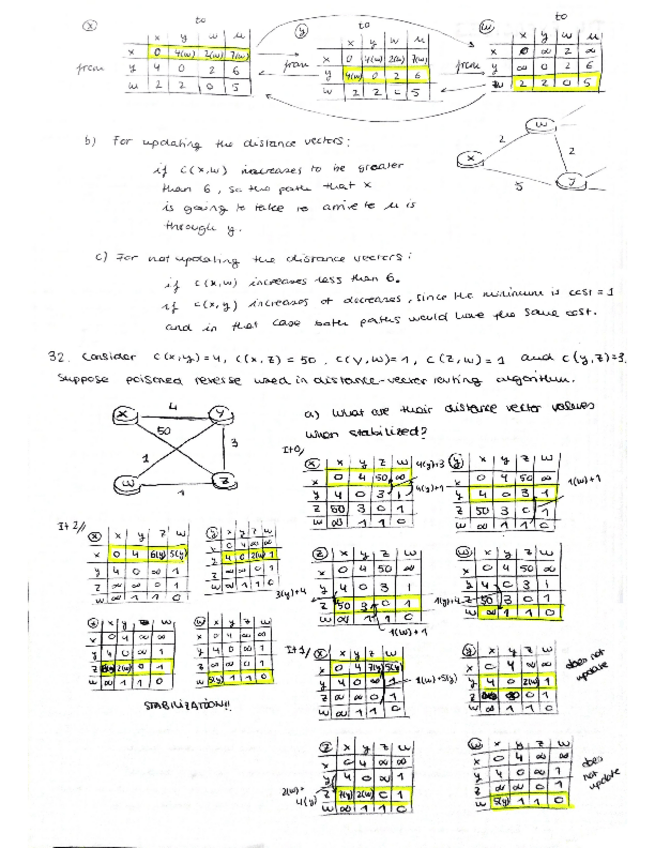 to
to
to
x
y
w
x y w u
x y w u
x y w u
from
x 0 4(w) 2(w) 7(w)
y 4 0 2 6
w 2 2 0 5
from
x 0 4(w) 2(w) 7(w)
y 4(w) 0 2 6
w 2 2 0 5
from
x 0 ∞ 2 ∞
y ∞ 0 2 6
w 2 2 0 5
b) For updating the distance vectors:
if c(x,w) increases to be greater
than 6, so the path that x
is going to take to arrive to u is
through y.
w
2
2
x
5
y
c) For not updating the distance vectors:
if c(x,w) increases less than 6.
if c(x,y) increases or decreases, since the minimum is cost = 1
and in that case both paths would have the same cost.
32. Consider c(x,y)=4, c(x,z) = 50, c(y,w)=1, c(z,w)=1 and c(y,z)=3.
Suppose poisoned reverse used in distance-vector routing algorithm.
x 4 y
50
1
3
w 1 z
a) What are their distance vector values
when stabilized?
It 0/
x
x y z w
x 0 4 50 ∞
y 4 0 3 1
z 50 3 0 1
w ∞ 1 1 0
4(y)+3
4(y)+1
y
x y z w
x 0 4 50 ∞
y 4 0 3 1
z 50 3 0 1
w ∞ 1 1 0
1(w)+1
z
x y z w
x 0 4 50 ∞
y 4 0 3 1
z 50 3 0 1
w ∞ 1 1 0
3(y)+4
1(w)+1
w
x y z w
x 0 4 50 ∞
y 4 0 3 1
z 50 3 0 1
w ∞ 1 1 0
1(y)+4
It 1/
x
x y z w
x 0 4 7(y) 5(y)
y 4 0 ∞ 1
z ∞ ∞ 0 1
w ∞ 1 1 0
1(w)+5(y)
y
x y z w
x 0 4 ∞ ∞
y 4 0 2(w) 1
0 1
w ∞ 1 1 0
does not
update
z
x y z w
x 0 4 ∞ ∞
y 4 0 ∞ 1
z 7(y) 2(w) 0 1
w ∞ 1 1 0
2(w)+
4(y)
w
x y z w
x 0 4 ∞ ∞
y 4 0 ∞ 1
z ∞ ∞ 0 1
w 5(y) 1 1 0
does
not
update
It 2//
x
x y z w
x 0 4 6(y) 5(y)
y 4 0 ∞ 1
z ∞ ∞ 0 1
w ∞ 1 1 0
y
x y z w
x 0 4 ∞ ∞
y 4 0 2(w) 1
z ∞ ∞ 0 1
w ∞ 1 1 0
z
x y z w
x 0 4 ∞ ∞
y 4 0 ∞ 1
z 2(w) 0 1
w ∞ 1 1 0
w
x y z w
x 0 4 ∞ ∞
y 4 0 ∞ 1
z ∞ ∞ 0 1
w 5(y) 1 1 0
STABILIZATION!!